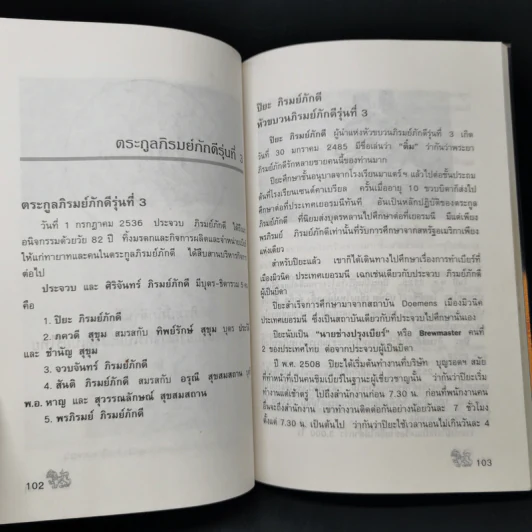 ตระกูลภิรมย์ภักดีรุ่นที่ 3
ตระกูลภิรมย์ภักดีรุ่นที่ 3
วันที่ 1 กรกฎาคม 2536 ประจวบ ภิรมย์ภักดี ได้ถึงแก่
อนิจกรรมด้วยวัย 82 ปี ทิ้งมรดกและกิจการผลิตและจำหน่ายเบียร์
ให้แก่ทายาทและคนในตระกูลภิรมย์ภักดี ได้สืบสานบริหารกิจการ
ต่อไป
ประจวบ และ ศิริจันทร์ ภิรมย์ภักดี มีบุตร-ธิดารวม 5 คน
คือ
1. ปิยะ ภิรมย์ภักดี
2. ภควดี สุขุม สมรสกับ ทิพย์รักษ์ สุขุม บุตร ประดิษฐ์
และ ชำนัญ สุขุม
3. จวบจันทร์ ภิรมย์ภักดี
4. สันติ ภิรมย์ภักดี สมรสกับ อรุณี สุขสมสถาน
พ.อ. หาญ และ สุวรรณลักษณ์ สุขสมสถาน
5. พรภิรมย์ ภิรมย์ภักดี
102
ปิยะ ภิรมย์ภักดี
หัวขบวนภิรมย์ภักดีรุ่นที่ 3
ปิยะ ภิรมย์ภักดี ผู้นำแห่งหัวขบวนภิรมย์ภักดีรุ่นที่ 3 เกิด
วันที่ 30 มกราคม 2485 มีชื่อเล่นว่า "ติ๋ม" ว่ากันว่าพระยา
ภิรมย์ภักดีรักหลายชายคนนี้ของท่านมาก
ปิยะศึกษาชั้นอนุบาลจากโรงเรียนมาแตร์ฯ แล้วไปต่อชั้นประถม
ต้นที่โรงเรียนเซนต์คาเบรียล ครั้นเมื่ออายุ 10 ขวบบิดาก็ส่งไป
ศึกษาต่อที่ประเทศเยอรมนีทันที อันเป็นหลักปฏิบัติของตระกูล
ภิรมย์ภักดี ที่นิยมส่งบุตรหลานไปศึกษาต่อที่เยอรมนี มีแต่เพียง
พรภิรมย์ ภิรมย์ภักดีเท่านั้นที่รับการศึกษาจากสหรัฐอเมริกาเพียง
แห่งเดียว
สำหรับปิยะแล้ว เขาก็ได้เดินทางไปศึกษาเรื่องการทำเบียร์ที่
เมืองมิวนิค ประเทศเยอรมนี เฉกเช่นเดียวกับประจวบ ภิรมย์ภักดี
ผู้เป็นบิดา
ปิยะสำเร็จการศึกษามาจากสถาบัน Doemens เมืองมิวนิค
ประเทศเยอรมนี ซึ่งเป็นสถาบันเดียวกับที่ประจวบไปศึกษามานั่นเอง
ปิยะนับเป็น "นายช่างปรุงเบียร์" หรือ Brewmaster คนที่
2 ของประเทศไทย ต่อจากประจวบผู้เป็นบิดา
ปี พ.ศ. 2508 ปิยะได้เริ่มต้นทำงานที่บริษัท บุญรอดฯ สมัย
ที่ทำหน้าที่เป็นคนชิมเบียร์ในฐานะผู้เชี่ยวชาญนั้น ว่ากันว่าปิยะเริ่ม
ทำงานแต่เช้าตรู่ ไปถึงสำนักงานก่อน 7.30 น. ก่อนที่พนักงานคน
อื่นจะถึงสำนักงาน เขาทำงานติดต่อกันอย่างน้อยวันละ 7 ชั่วโมง
ตั้งแต่ 7.30 น. เป็นต้นไป ว่ากันว่าปิยะใช้เวลานอนไม่เกินวันละ 4
103